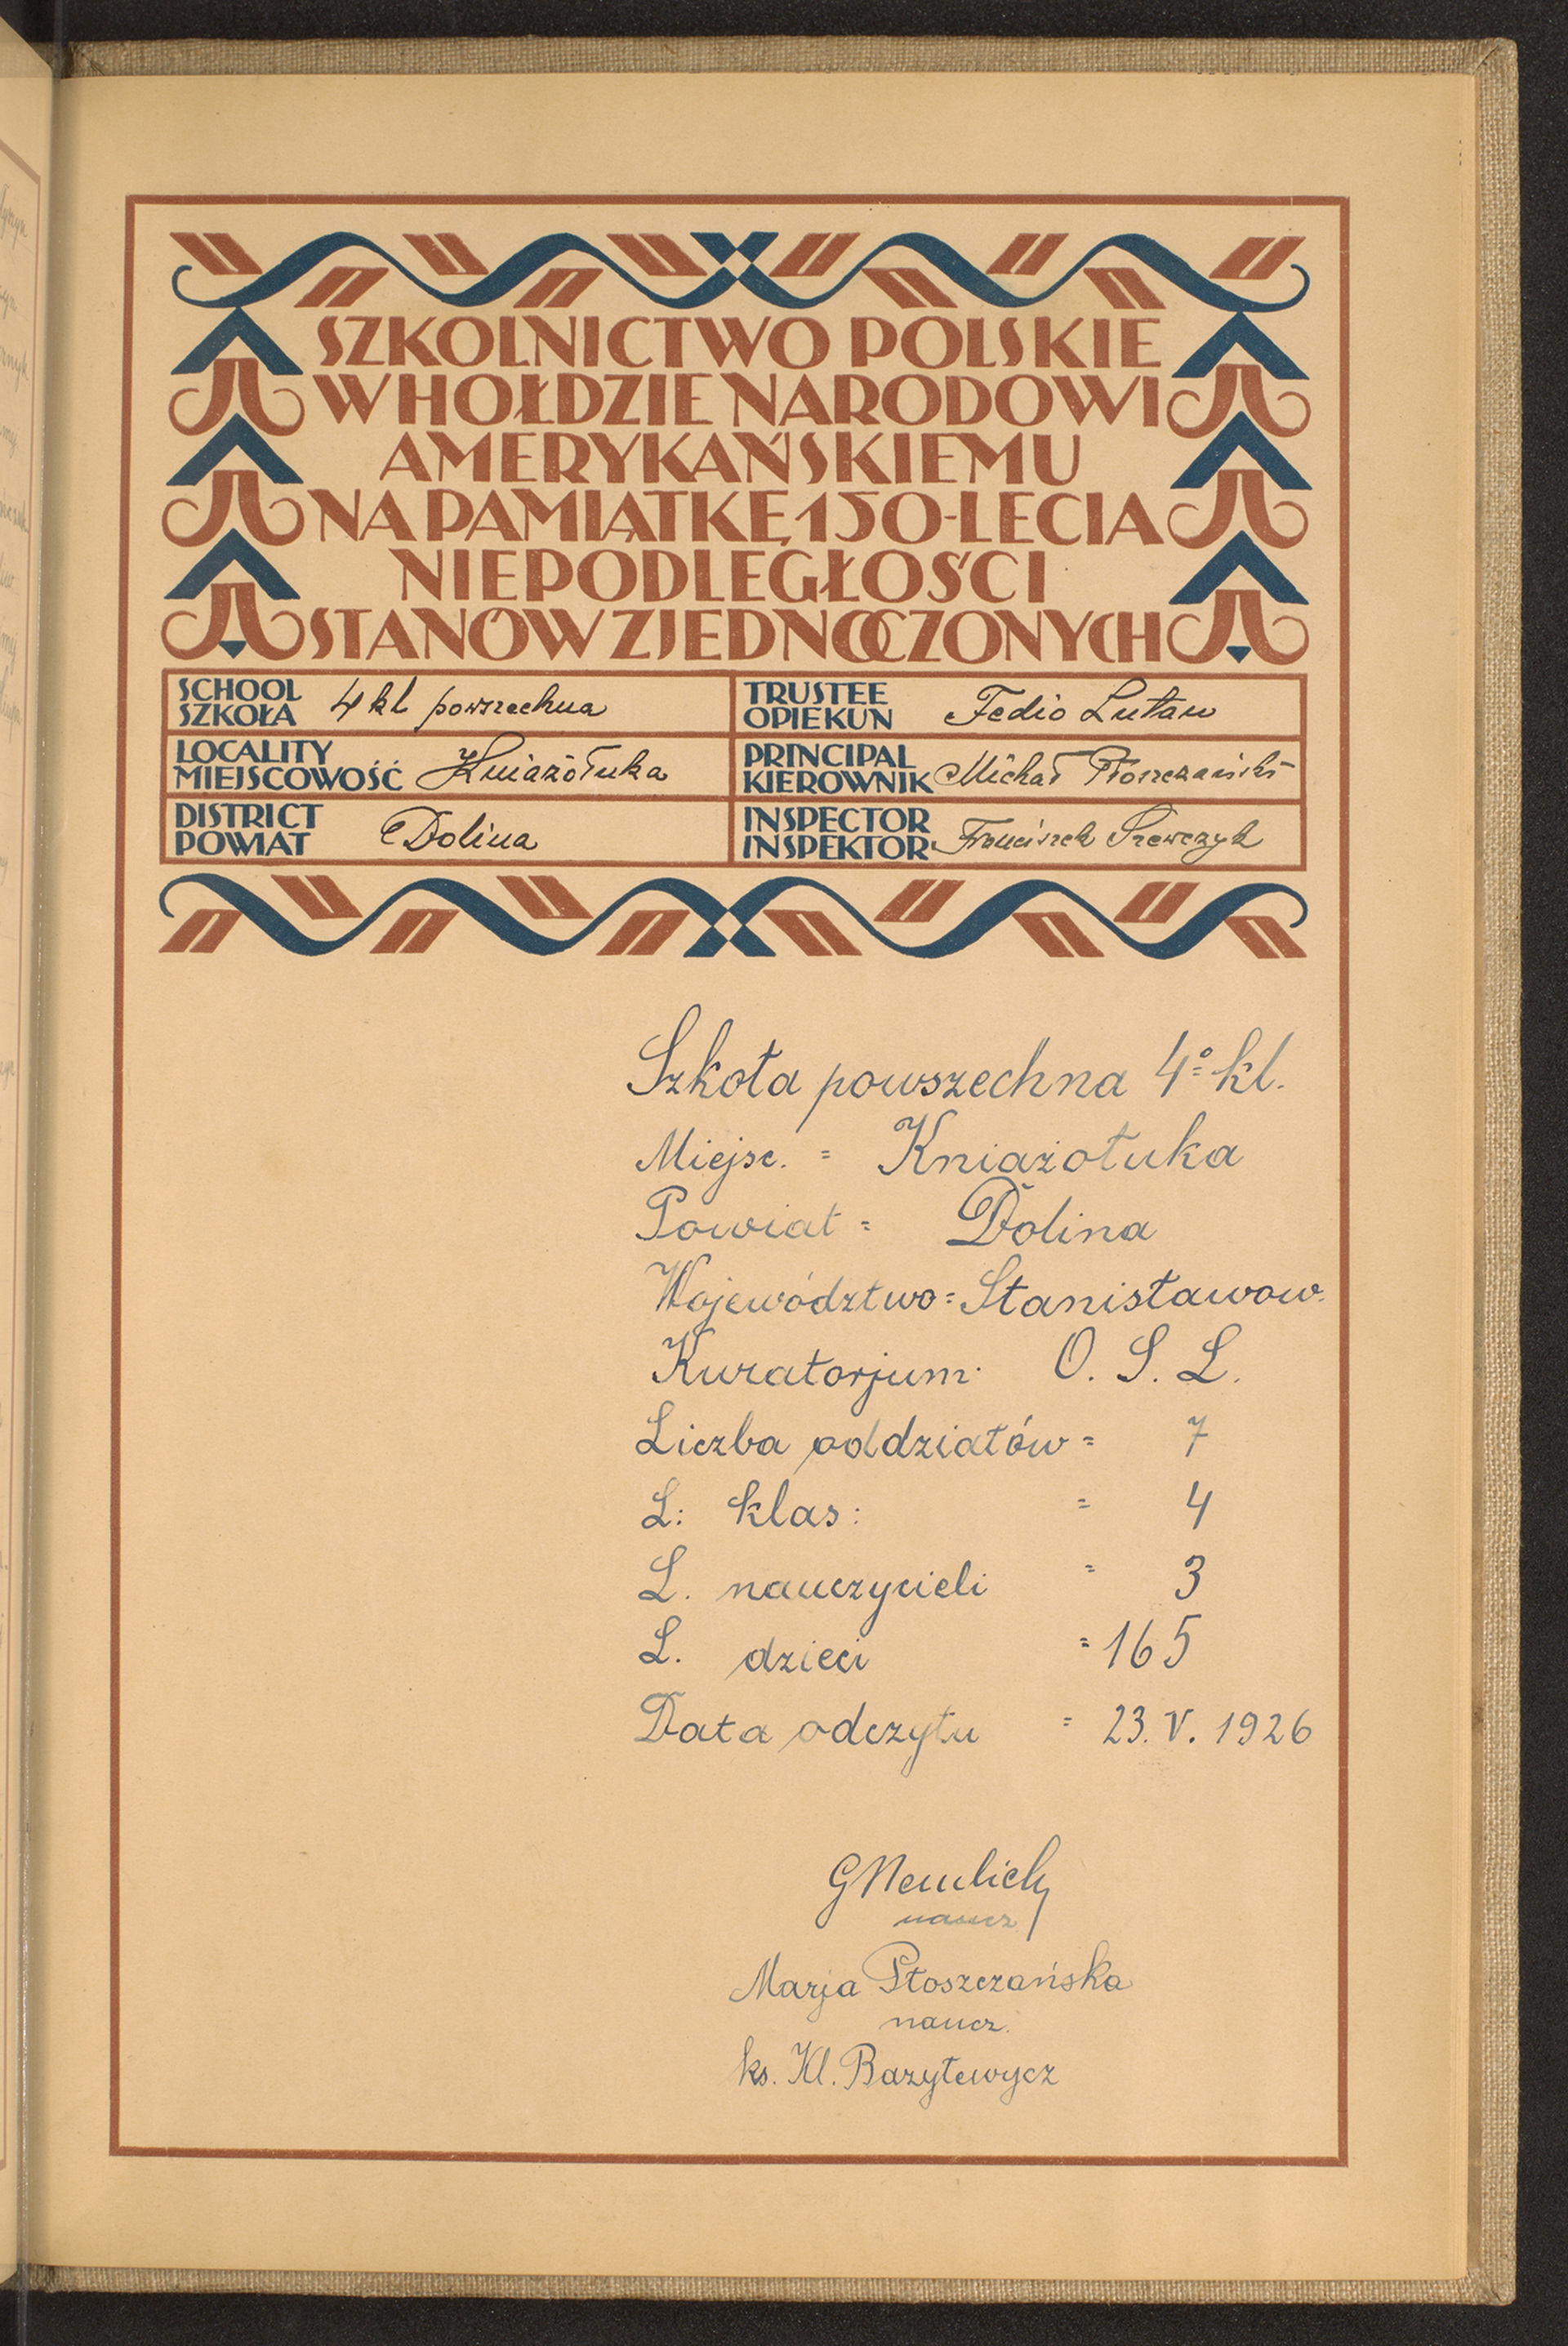 SZKOLNICTWO POLSKIE
W HOŁDZIE NARODOWI
AMERYKAŃSKIEMU
NA PAMIĄTKĘ 150-LECIA
NIEPODLEGŁOŚCI
STANÓW ZJEDNOCZONYCH
SCHOOL
SZKOŁA 4 kl powszechna
TRUSTEE
OPIEKUN Fedio Lutaw
LOCALITY
MIEJSCOWOŚĆ Kniażołuka
PRINCIPAL
KIEROWNIK Michał Płoszczański
DISTRICT
POWIAT Dolina
INSPECTOR
INSPEKTOR Franciszek Szewczyk
Szkoła powszechna 4º kl.
Miejsc. = Kniażołuka
Powiat = Dolina
Województwo = Stanisławow.
Kuratorjum: O. S. L.
Liczba oddziałów = 7
L: klas: = 4
L. nauczycieli = 3
L. dzieci = 165
Data odczytu = 23. V. 1926
naucz.
Marja Płoszczańska
naucz.
ks. Kl. Bazylewycz